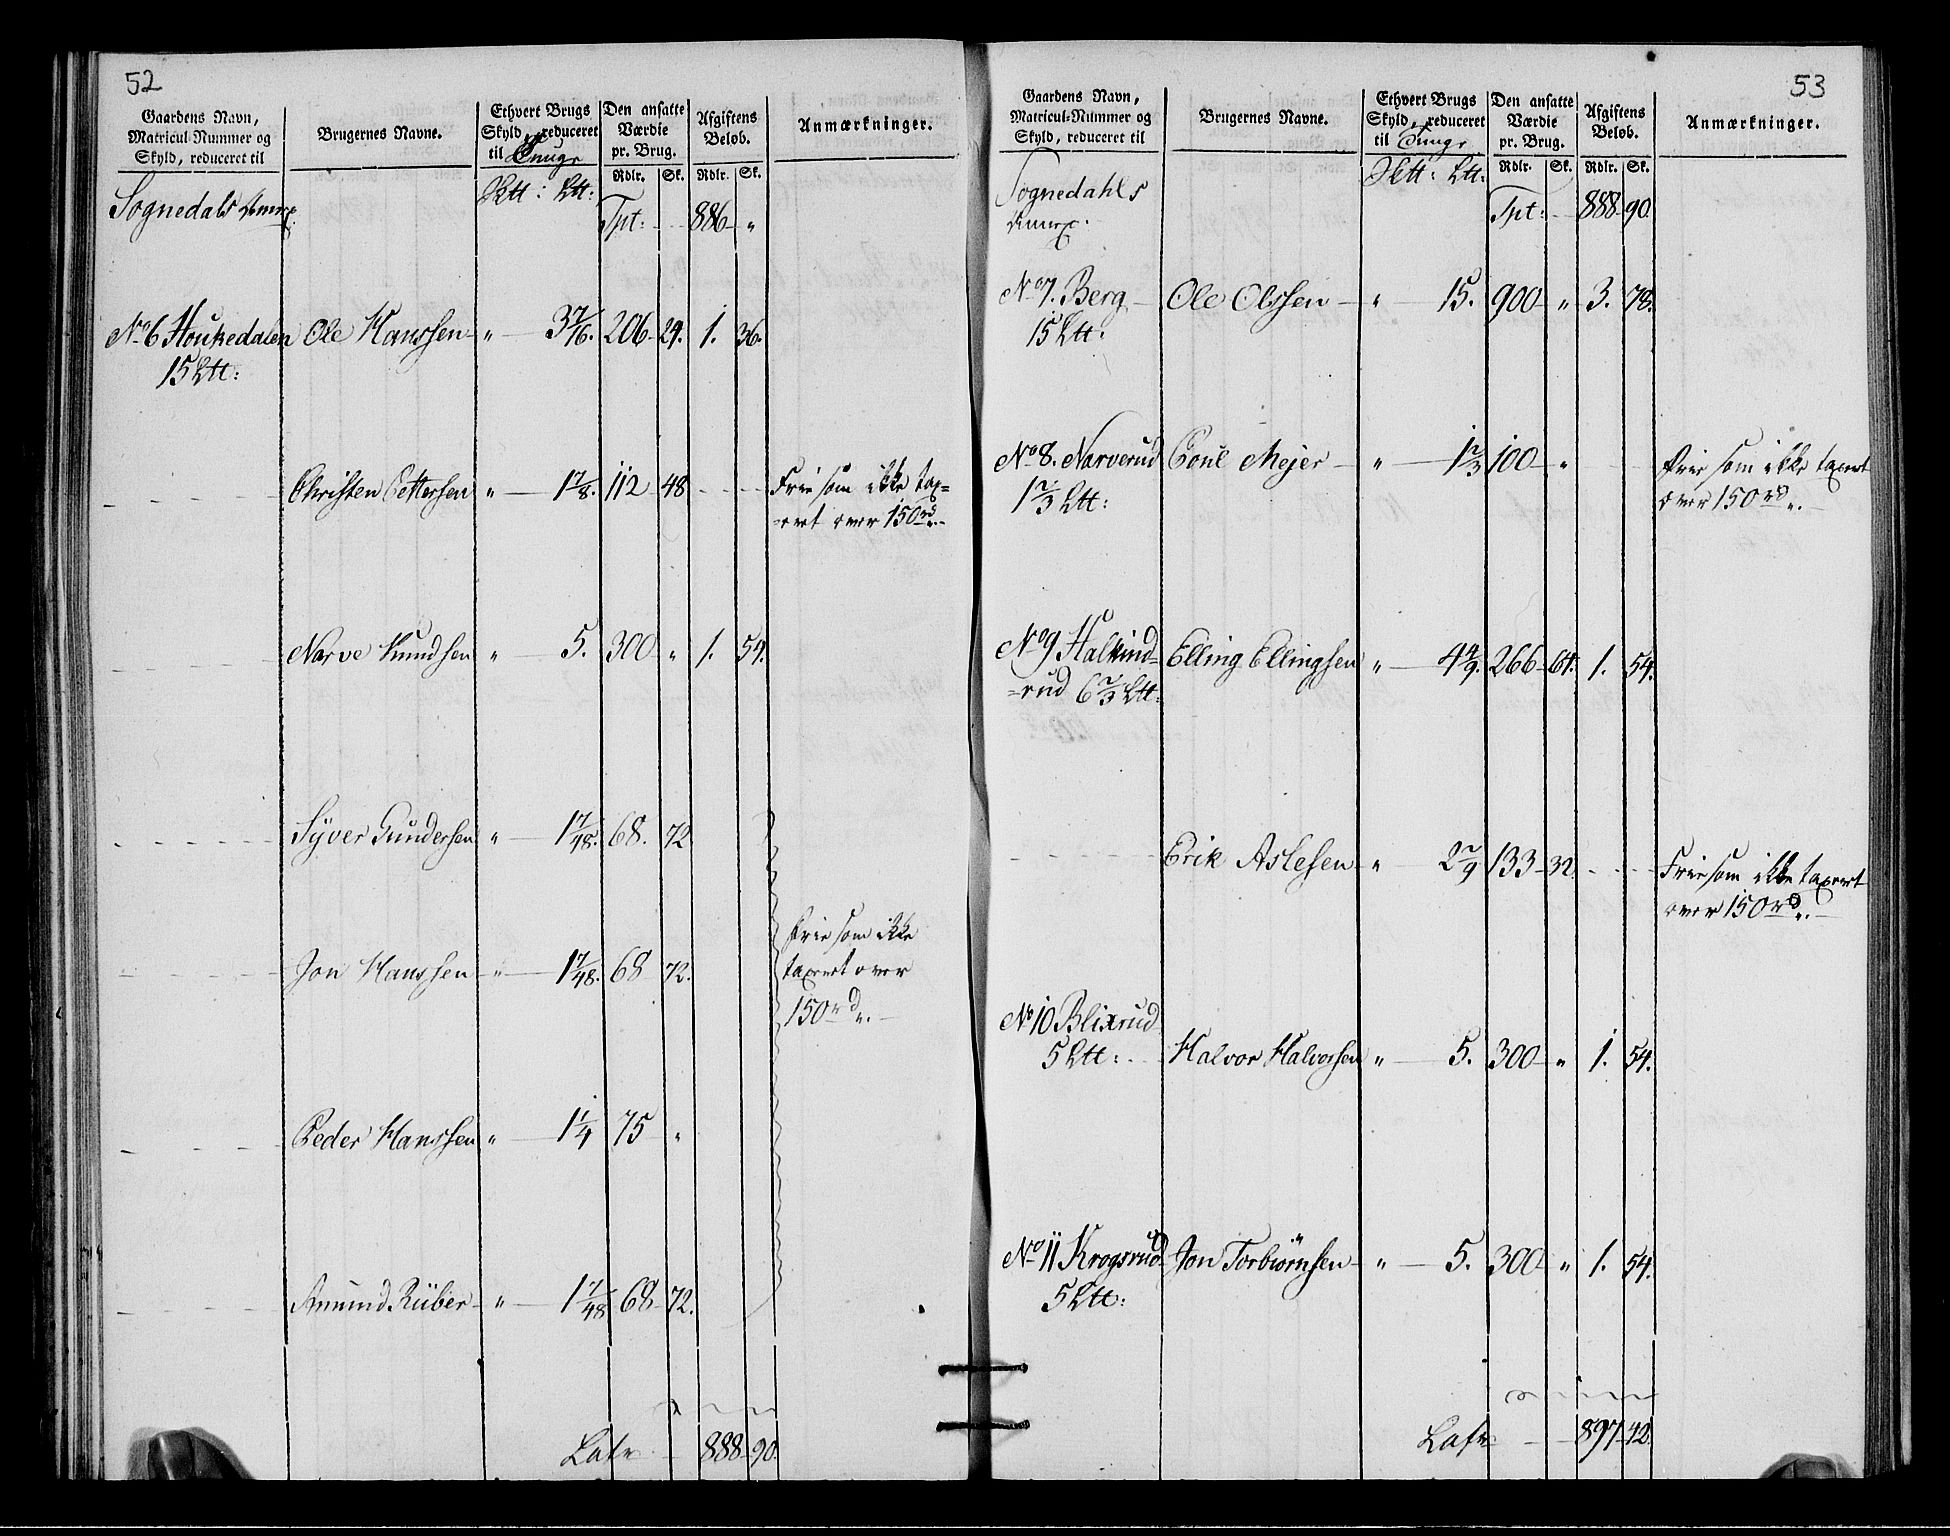 52
Gaardens Navn, Matricul-Nummer og Skyld, reduceret til
Brugernes Navne.
Ethvert Brugs Skyld, reduceret til Tunge
Den ansatte Værdie pr. Brug.
Afgiftens Beløb.
Anmærkninger.
Rdlr. Sk. Rdlr. Sk.
Sognedals Annex. Tpt: 886 „
No 6 Houkedalen Ole Hanssen „ 3 7/16. 206 24. 1. 36.
15 Ltt:
Christen Pettersen „ 1 7/8. 112 48 Frie som ikke tax=
=ert over 150 rd.
Narve Knudsen „ 5. 300 „ 1. 54.
Syver Gundersen „ 1 7/48. 68. 72
Frie som ikke
Jon Hanssen „ 1 7/48. 68 72. taxert over
150 rd.
Peder Hanssen „ 1 1/4 75 „
Amund Rüber „ 1 7/48 68 72.
Latr 888 90.
53
Gaardens Navn, Matricul-Nummer og Skyld, reduceret til
Brugernes Navne.
Ethvert Brugs Skyld, reduceret til Tunge
Den ansatte Værdie pr. Brug.
Afgiftens Beløb.
Anmærkninger.
Rdlr. Sk. Rdlr. Sk.
Sognedahls
Annex. Tpt: 888 90.
No 7. Berg Ole Olssen „ 15. 900 „ 3. 78.
15 Ltt:
No 8. Narverud Poul Mejer „ 1 2/3 100 „ Frie som ikke taxert
1 2/3 Ltt: over 150 rd.
No 9 Halkind=
=rud 6 2/3 Ltt: Elling Ellingsen „ 4 4/9. 266 64. 1. 54.
Erik Aslesen „ 2 2/9 133 32 Frie som ikke taxert
over 150 rd.
No 10 Blixrud
5 Ltt: Halvor Halvorsen „ 5. 300 „ 1. 54.
No 11 Krogsrud Jon Torbiørnsen „ 5. 300 „ 1. 54.
5 Ltt:
Latr 897 42.